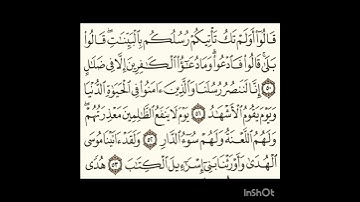 قَالُوٓا۟ أَوَلَمْ تَكُ تَأْتِيكُمْ رُسُلُكُم بِٱلْبَيِّنَٰتِ ۖ قَالُوا۟
بَلَىٰ ۚ قَالُوا۟ فَٱدْعُوا۟ ۗ وَمَا دُعَٰٓؤُا۟ ٱلْكَٰفِرِينَ إِلَّا فِى ضَلَٰلٍ
٥٠ إِنَّا لَنَنصُرُ رُسُلَنَا وَٱلَّذِينَ ءَامَنُوا۟ فِى ٱلْحَيَوٰةِ ٱلدُّنْيَا
وَيَوْمَ يَقُومُ ٱلْأَشْهَٰدُ ٥١ يَوْمَ لَا يَنفَعُ ٱلظَّٰلِمِينَ مَعْذِرَتُهُمْ ۖ
وَلَهُمُ ٱللَّعْنَةُ وَلَهُمْ سُوٓءُ ٱلدَّارِ ٥٢ وَلَقَدْ ءَاتَيْنَا مُوسَى
ٱلْهُدَىٰ وَأَوْرَثْنَا بَنِىٓ إِسْرَٰٓءِيلَ ٱلْكِتَٰبَ ٥٣ هُدًى
InShOt